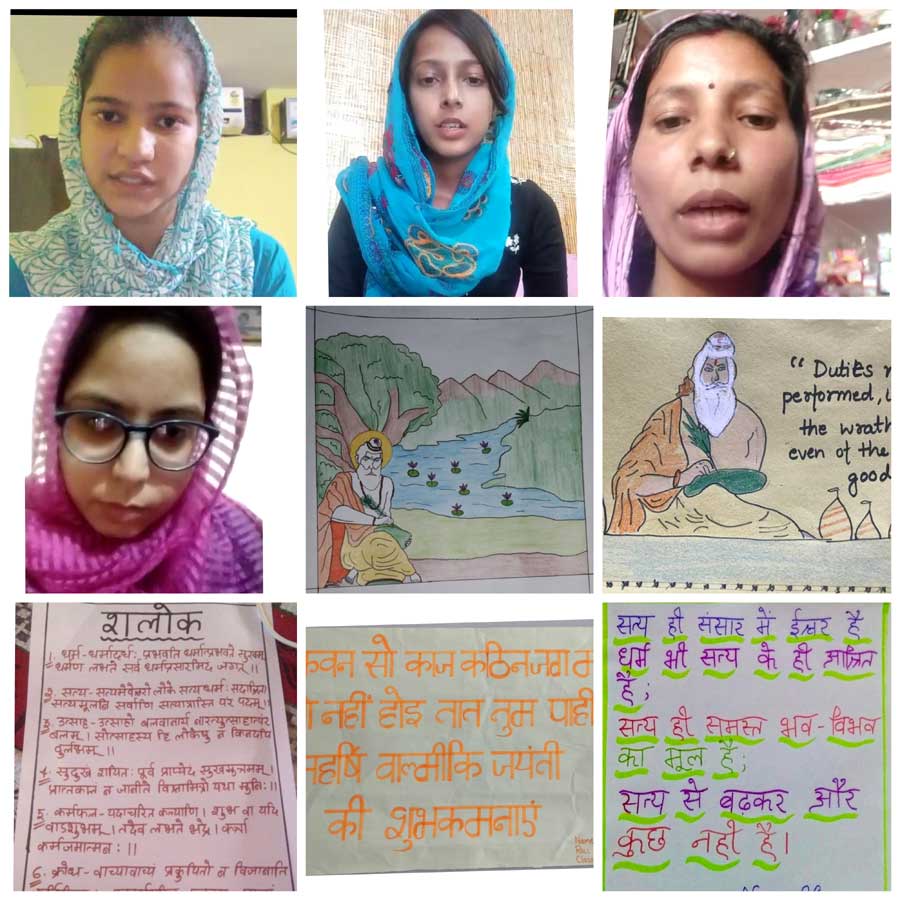 "Duties
performed,
the wrath
even of the
good
शलोक
1. धर्म-धर्मादर्थः प्रभवति धर्मात्प्रभवते सुखम्
धर्मेण लभते सर्वं धर्मप्रसारमिदं जगत् ।।
2. सत्य-सत्यमेवेश्वरो लोके सत्ये धर्मः सदाश्रितः
सत्यमूलानि सर्वाणि सत्यान्नास्ति परं पदम् ।।
3. उत्साह-उत्साहो बलवानार्य नास्त्युत्साहात्परं
बलम् । सोत्साहस्य हि लोकेषु न किञ्चदपि
दुर्लभम् ।।
4. सुदुखं शयितः पूर्वं प्राप्येदं सुखमुत्तमम् ।
प्राप्तकालं न जानीते विश्वामित्रो यथा मुनिः ।।
5. कर्मफल-यदाचरित कल्याणि । शुभं वा यदि
वाऽशुभम् । तदेव लभते भद्रे । कर्त्ता
कर्मजमात्मनः ।।
6. क्रोध-वाच्यावाच्यं प्रकुपितो न विजानाति
कवन सो काज कठिन जग
नहीं होइ तात तुम पाही
महर्षि वाल्मीकि जयंती
की शुभकामनाएं
Name
Roll
Class
सत्य ही संसार में ईश्वर है
धर्म भी सत्य के ही आश्रित
है;
सत्य ही समस्त भव-विभव
का मूल है;
सत्य से बढ़कर और
कुछ नहीं है।